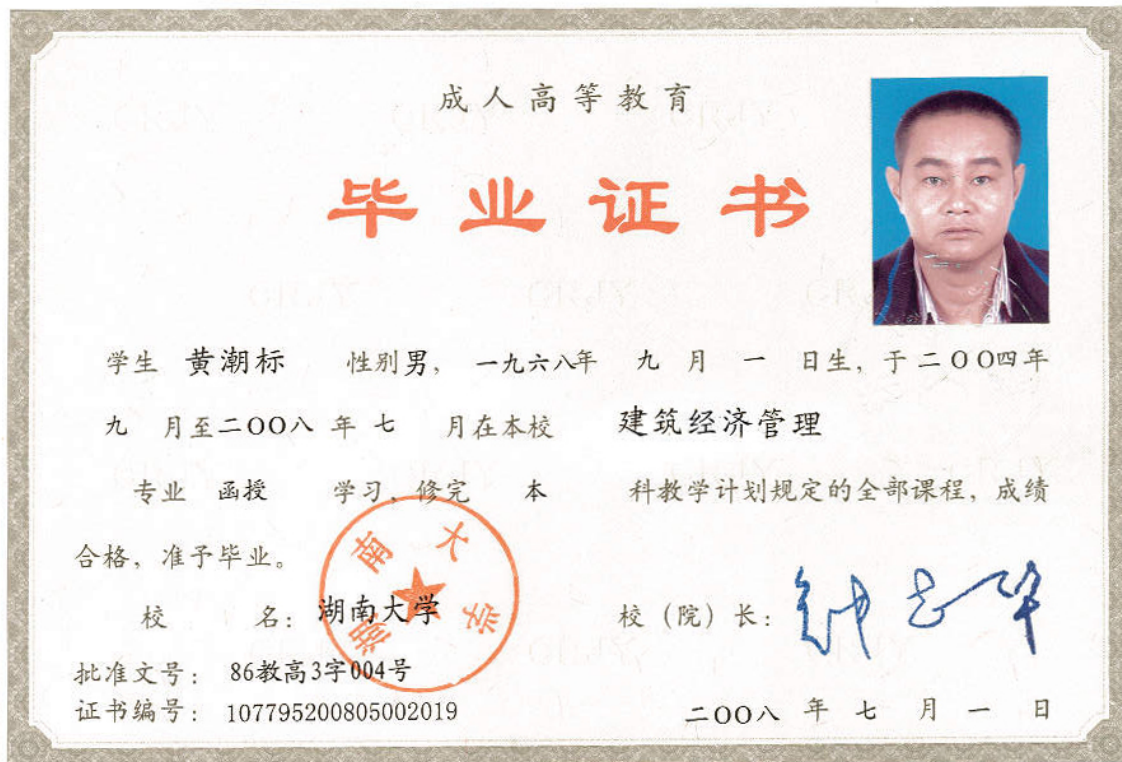 成人高等教育
毕业证书
学生 黄潮标 性别男, 一九六八年 九 月 一 日生, 于二〇〇四年
九 月至二〇〇八 年 七 月在本校 建筑经济管理
专业 函授 学习, 修完 本 科教学计划规定的全部课程, 成绩
合格, 准予毕业。
校 名: 湖南大学 校 (院) 长: 钟志华
湖南大学
批准文号: 86教高3字004号
证书编号: 107795200805002019 二〇〇八 年 七 月 一 日